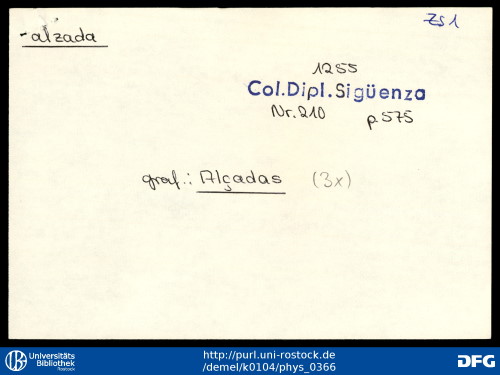 -alzada
ZS1
1255
Col.Dipl.Sigüenza
Nr. 210 p 575
graf.: Alçadas (3x)
Universitäts
Bibliothek
Rostock
http://purl.uni-rostock.de
/demel/k0104/phys_0366
DFG